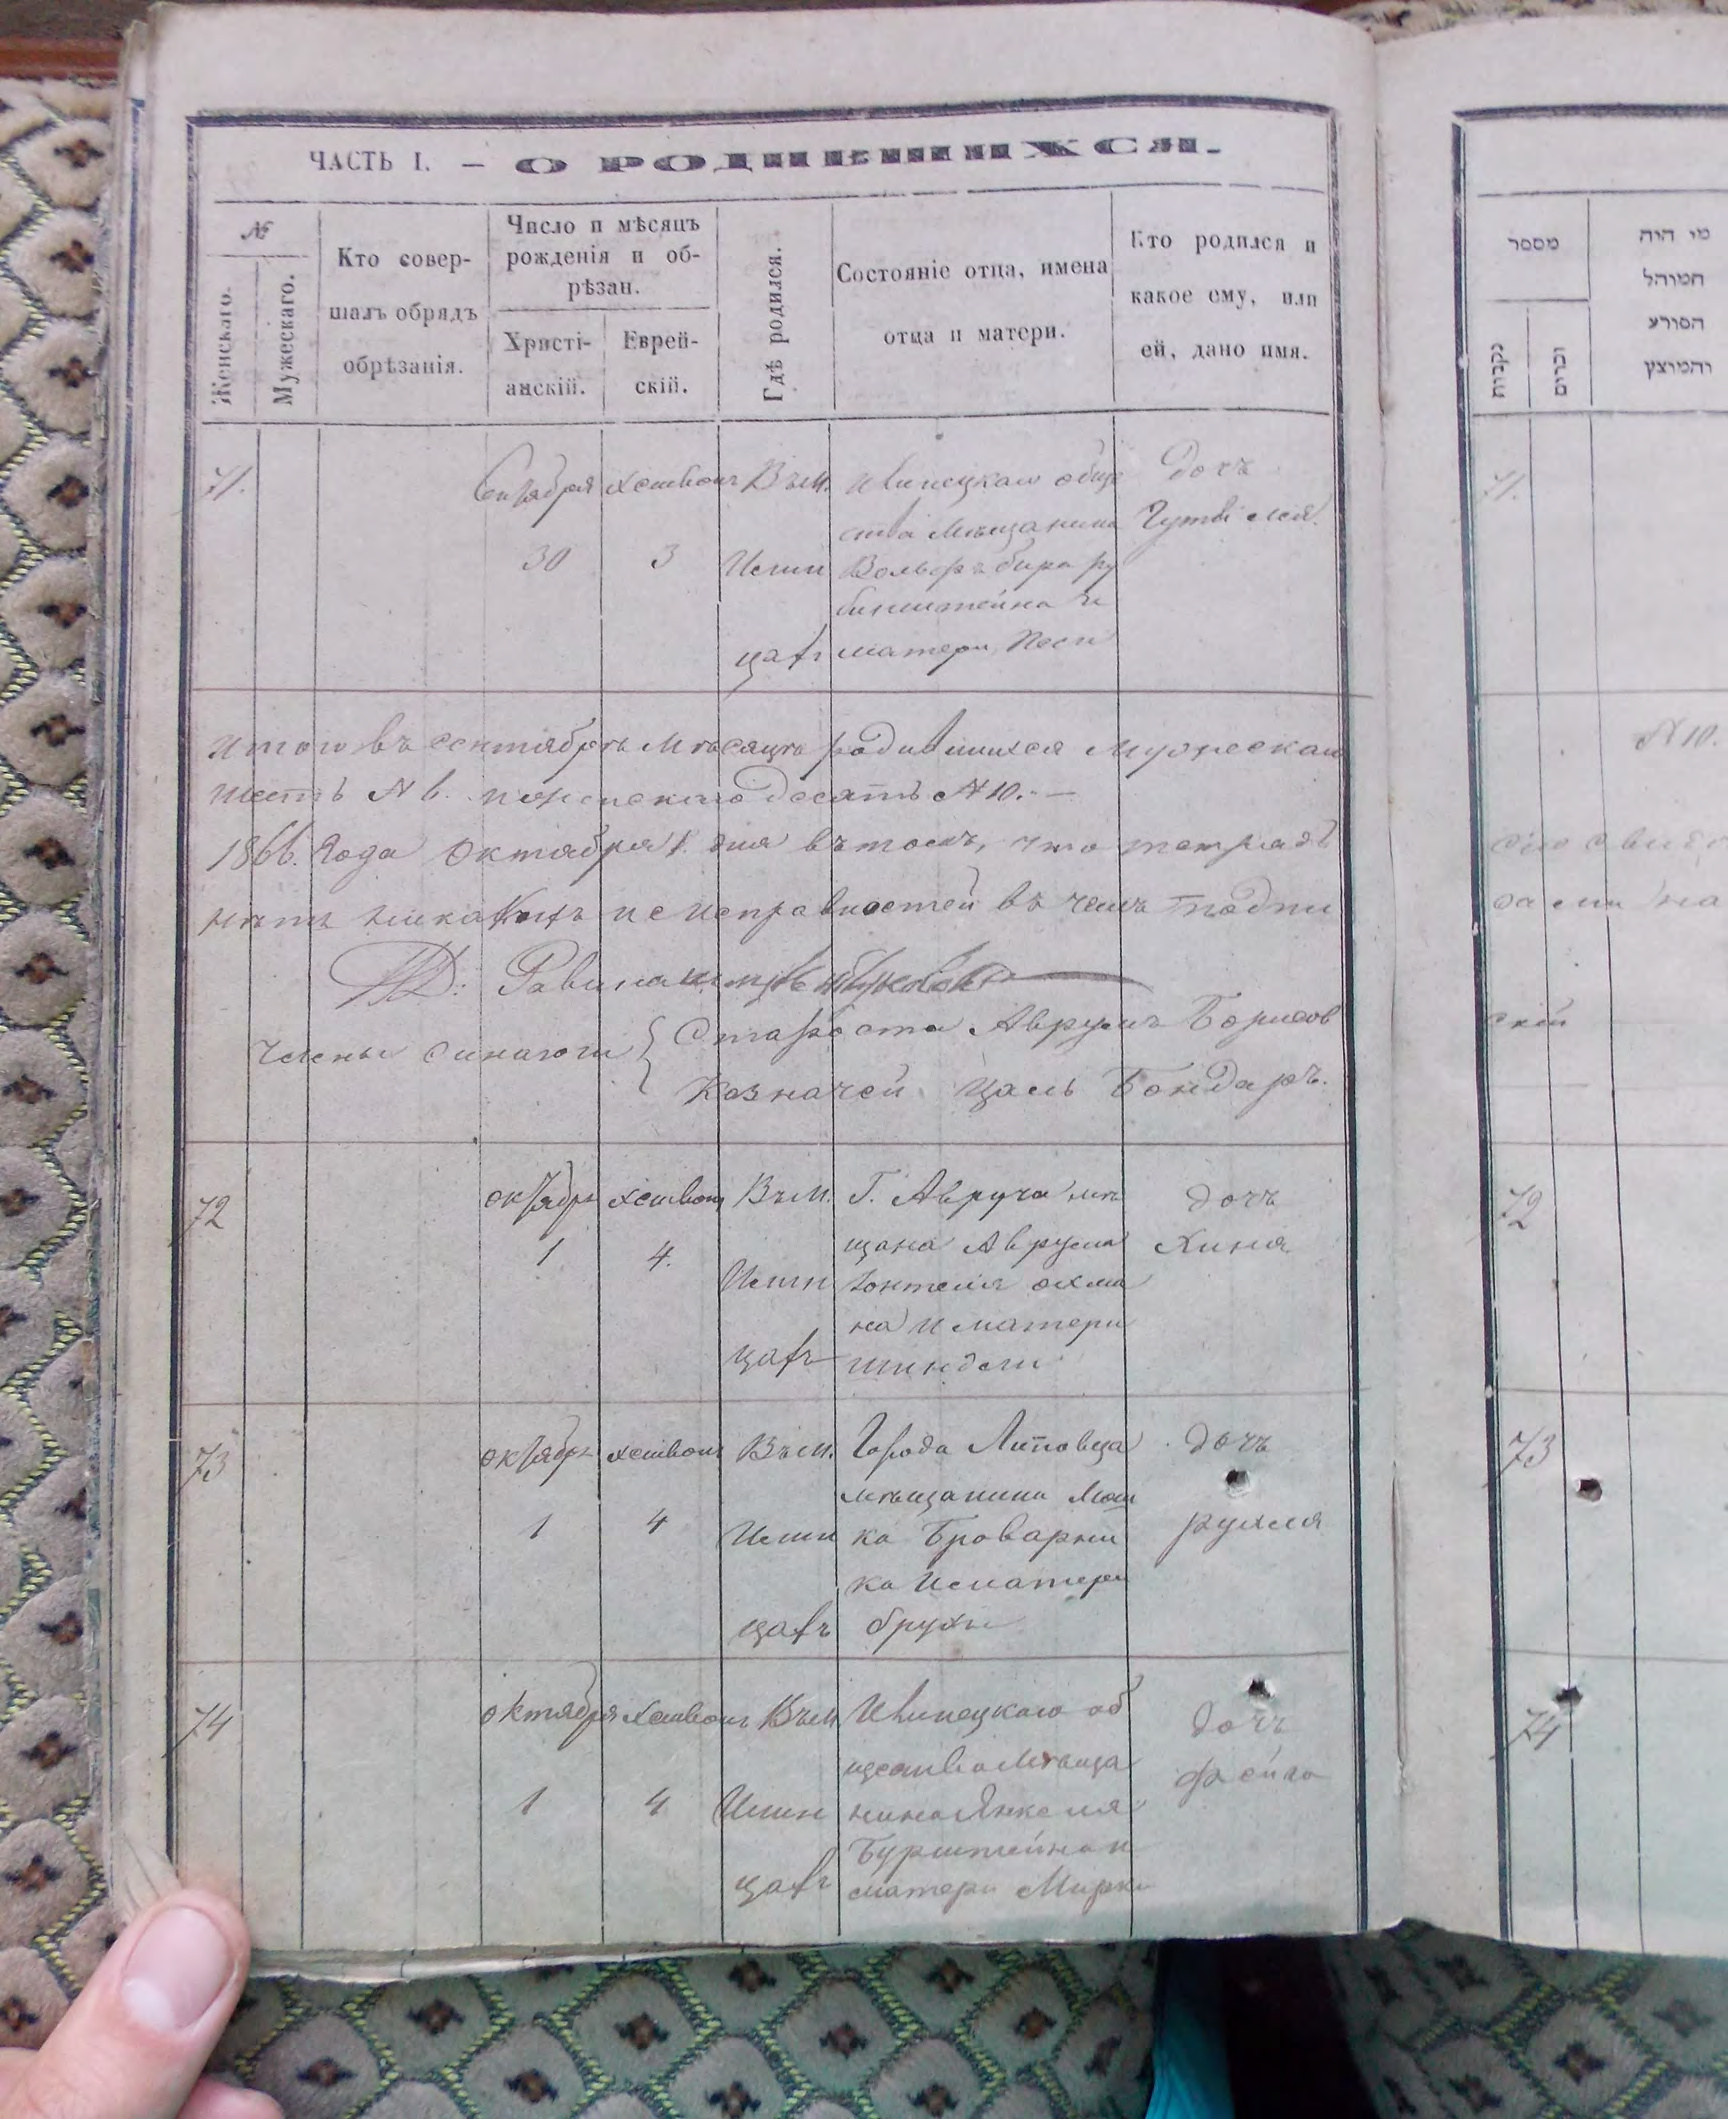 ЧАСТЬ I. — О РОДИВШИХСЯ.
№
Женскаго.
Мужескаго.
Кто совер-
шалъ обрядъ
обрѣзанія.
Число и мѣсяцъ
рожденія и об-
рѣзан.
Христі-
анскій.
Еврей-
скій.
Гдѣ родился.
Состояніе отца, имена
отца и матери.
Кто родился и
какое ему, или
ей, дано имя.
71.
Сентября
30
3
Въ м.
цахъ
обще
ства Мѣщанина
Вольфъ бера ру
бинштейна и
матери Песи
Дочъ
итого въ сентябрѣ Мѣсяцѣ родившихся Мужескаго
шесть N 6. и женскаго Десять N 10. —
1866. Года Октября 1. дня въ томъ, что тетрадѣ
нѣтъ никакихъ неисправностей въ чемъ подпи
Члены синагоги
Староста Аврумъ Борисов
Козначей Цаль Бондаръ.
72
октября
1
4.
Въ М.
цахъ
Г. Авруча мѣ
щана Аврума
на и матери
шиндели
дочъ
Хиня
73
октября
1
4
Въ М.
цахъ
Города Липовца
мѣщанина Мош
ка Броварни
ка И матери
брухи
дочъ
рухля
74
октября
1
4
Въ М
цахъ
об
щества Мѣща
нина Янкеля
Бурштейна и
матери Мирки
дочъ
фейга
מספר
נקבות
זכרים
מי היה
המוהל
הפורע
והמוצץ
71.
N 10.
скій
72
73
74